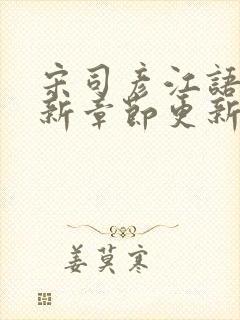 宋司彦江語
新章節更新
姜莫寒